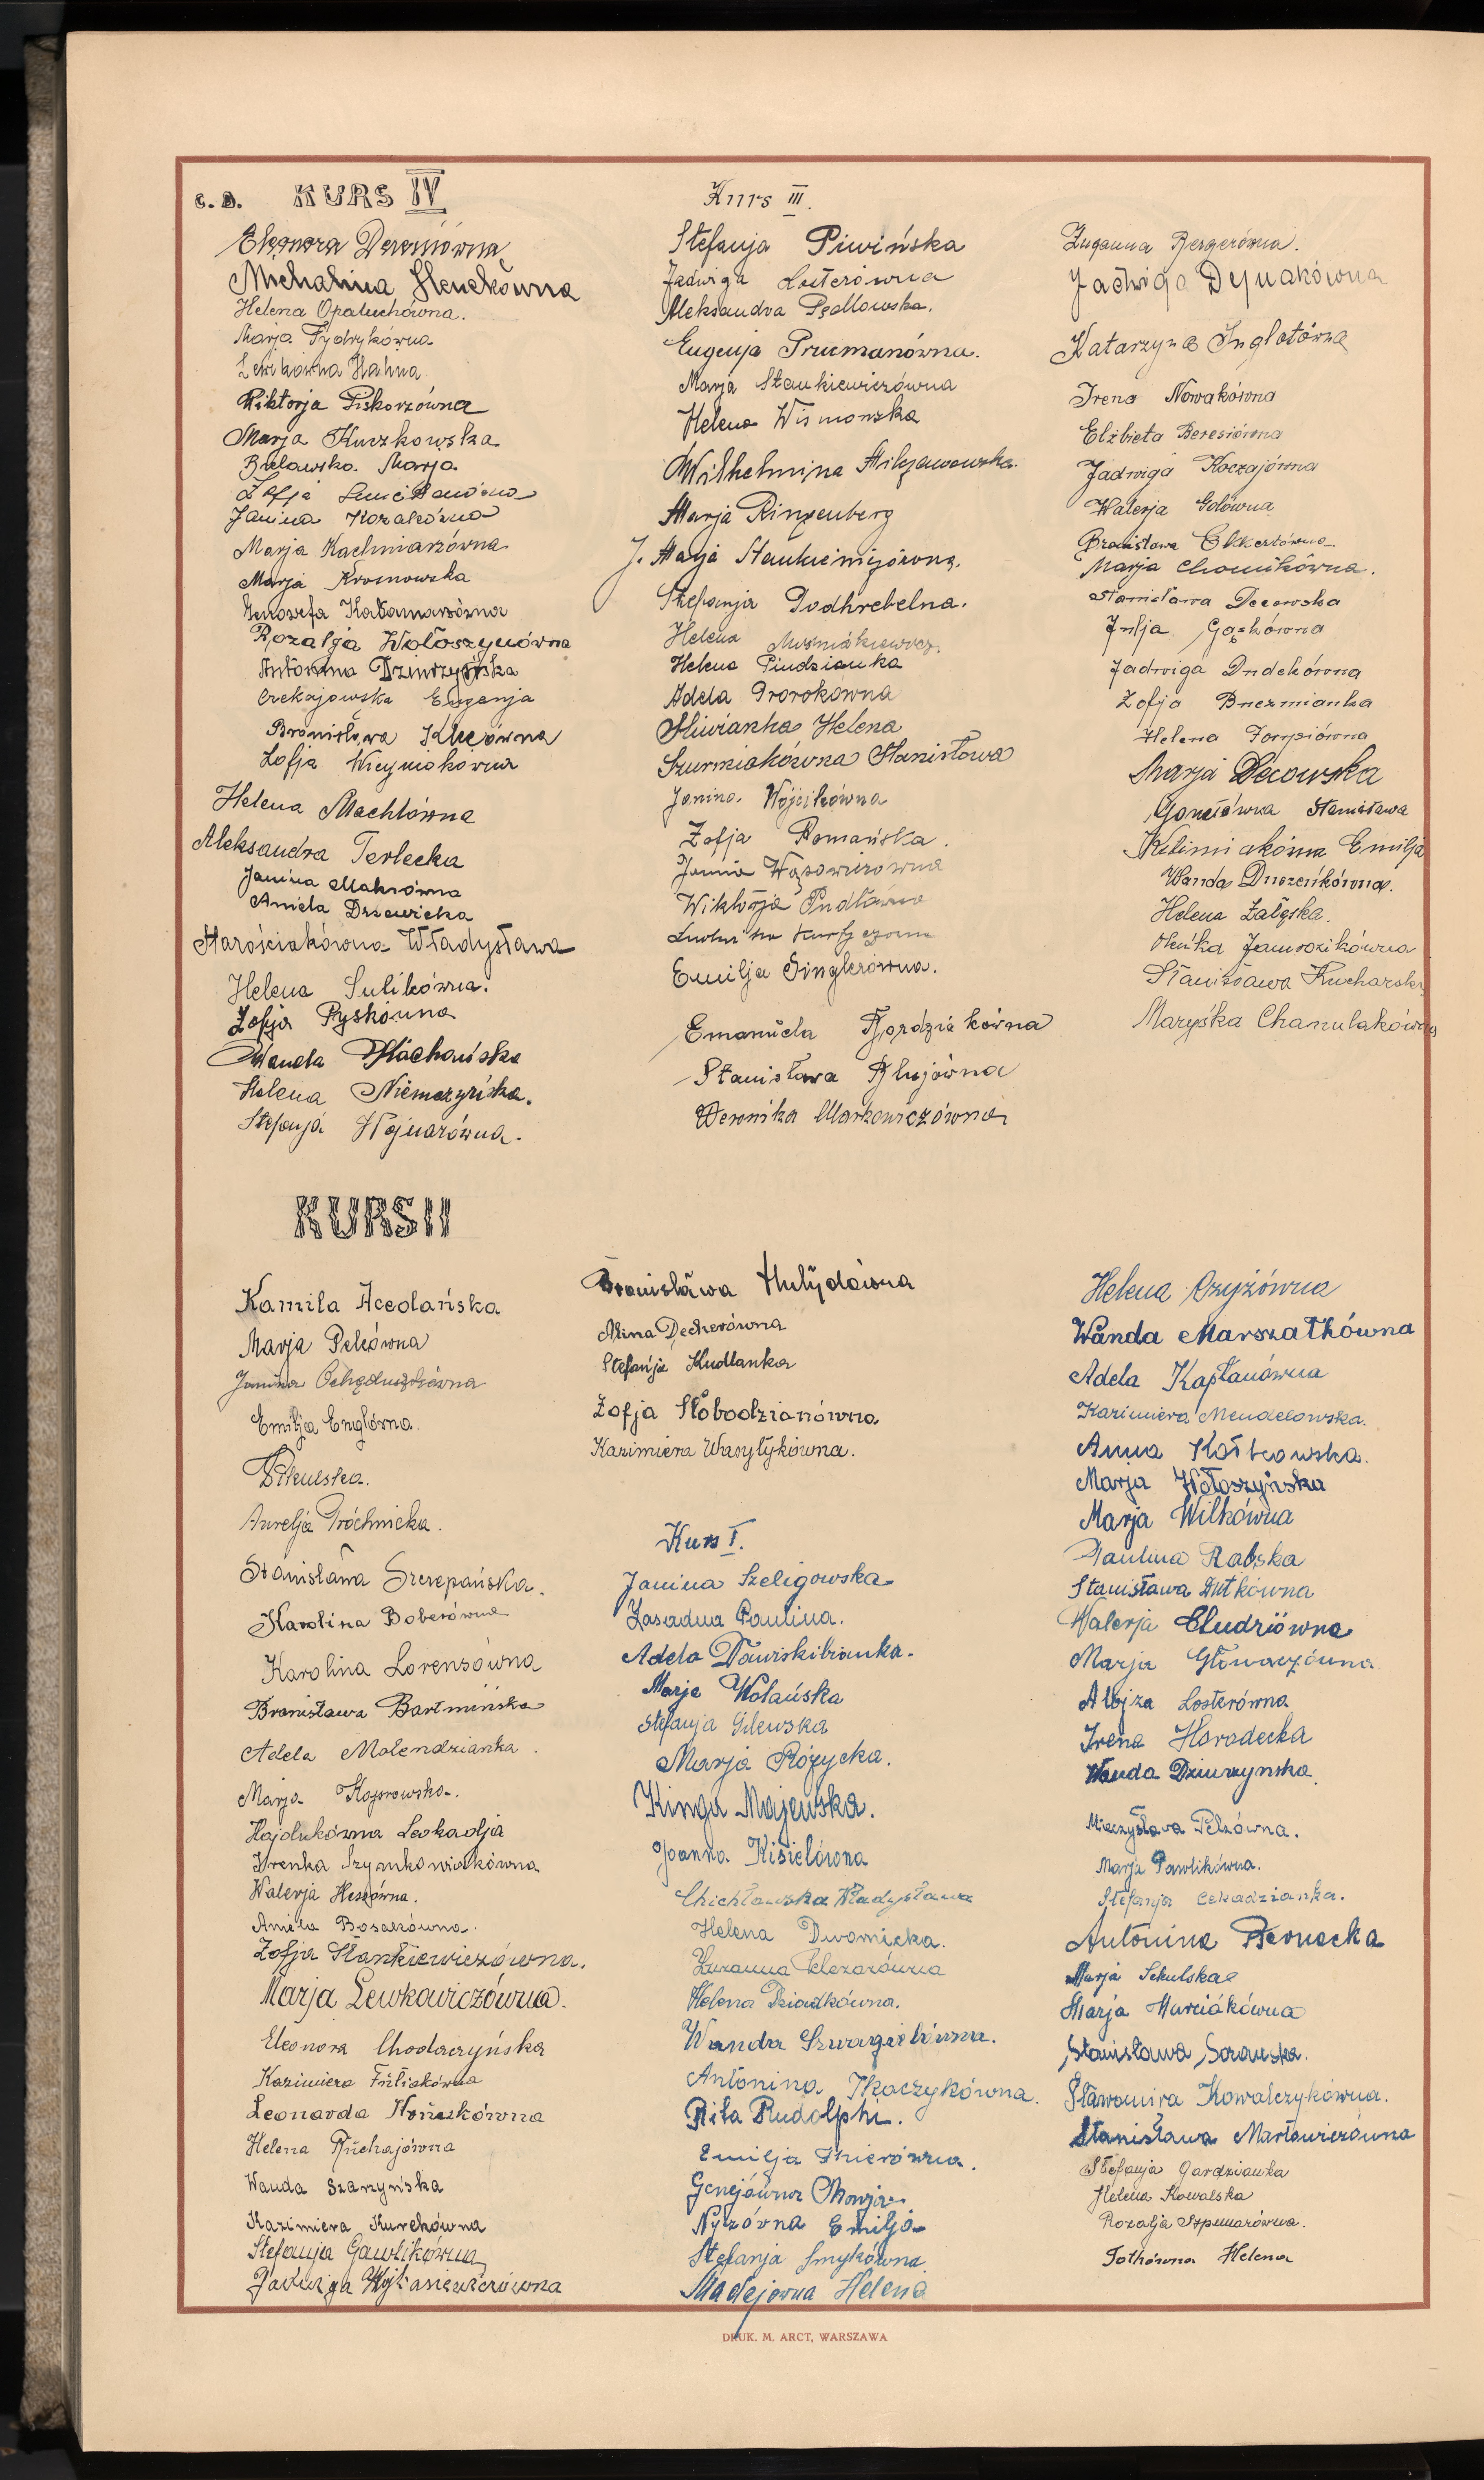 c. D. KURS IV
Eleonora Dereniówna
Michalina Henckówna
Helena Opaluchówna.
Marja Fydrykówna
Lewikówna Hahna
Wiktorja Piskorzówna
Marja Kuczkowska
Bielawska Marja
Zofja
Janina Kozakówna
Marja Kachniarzówna
Marja Kronowska
Genowefa Katamarzówna
Rozalja Wołoszynówna
Antonina Dziurzyńska
Czekajowska Eugenja
Bronisława Klucówna
Zofja Wicyniakówna
Helena Machlówna
Aleksandra Terlecka
Janina Makówna
Aniela Drzewicka
Starościakówna Władysława
Helena Sulikówna.
Zofja Pyskówna
Wanda Płachańska
Helena Niemczyńska.
Stefanja Wojnarówna.
Kurs III.
Stefanja Piwińska
Jadwiga Losterówna
Aleksandra Pędlowska.
Eugenja Prucmanówna.
Marja Stankiewiczówna
Helena Wismonska
Wilhelmina
Marja Ringenberg
J. Marja
Stefanja Podhrebelna.
Helena Muśniakiewicz
Helena Piudzianka
Adela Prorokówna
Śliwianka Helena
Szurmiakówna Stanisława
Janina Wójcikówna
Zofja Romańska.
Janina Wąsowiczówna
Wiktorja Pudłówna
Ludwika
Emilja Singlerówna.
Emanuela Gordziakówna
Stanisława Flujówna
Weronika Markowiczówna
Zuzanna Bergerówna.
Jadwiga Dejnakówna
Katarzyna Inglotówna
Irena Nowakówna
Elżbieta Beresiówna
Jadwiga Koczajówna
Walerja Golówna
Bronisława Ekkertówna
Marja Chomikówna.
Stanisława Decowska
Julja Gąskówna
Jadwiga Dudekówna
Zofja Buczmianka
Helena Fompiówna
Marja Decowska
Goneiówna Stanisława
Klimiakówna Emilja
Wanda Duszeńkówna.
Helena Załęska.
Oleńka Jamrozikówna
Stanisława Kucharska
Maryśka Chamulakówna
KURS II
Kamila Acedańska
Marja Pelcówna
Janina Ochęduszkówna
Emilja Englówna.
Pikulska.
Aurelja Próchnicka.
Stanisława Szczepańska.
Karolina Boberówna
Karolina Lorenzówna
Bronisława Bartmińska
Adela Molendzianka.
Marja Koprowska.
Hajdukówna Leokadja
Irenka Szymkowiakówna
Walerja Hessówna.
Aniela Bosakówna.
Zofja Stankiewiczówna.
Marja Lewkowiczówna.
Eleonora Chodaczyńska
Kazimiera Fuliakówna
Leonarda Honeskówna
Helena Ruchajówna
Wanda Szarzyńska
Kazimiera Kurekówna
Stefanja Gawlikówna
Jadwiga Wojtasiewiczówna
Bronisława Hulydówna
Alina Deckerówna
Stefanja Kudlanka
Zofja Słobodzianówna
Kazimiera Wasylykówna.
Kurs I.
Janina Szeligowska
Zasadna Paulina.
Adela Dawiskibianka.
Marja Wolańska
Stefanja Gilewska
Marja Różycka.
Kinga Majewska.
Joanna Kisielówna
Chichłowska Władysława
Helena Dwornicka.
Zuzanna Pelczarówna
Helena Dziadkówna.
Wanda Szwagielówna.
Antonina Tkaczykówna.
Rita Rudolphi.
Emilja Thierówna.
Genejówna Marja
Nyczówna Emilja
Stefanja Smykówna
Madejowna Helena
Helena Czyżówna
Wanda Marszałkówna
Adela Kapłanówna
Kazimiera Mendelowska.
Anna Kotkowska.
Marja Wołoszyńska
Marja Wilkówna
Paulina Rabska
Stanisława Dutkówna
Walerja Chudziówna
Marja Głowaczówna
Alojza Losterówna
Irena Horodecka
Wanda Dziurzynska.
Mieczysława Pelzówna.
Marja Pawlikówna.
Stefanja Cekadzianka.
Antonina Bernacka
Marja Sekulska
Marja Murciákówna
Stanisława Sarauska.
Sławomira Kowalczykówna.
Stanisława Martowiczówna
Stefanja Gardzianka
Helena Kowalska
Rozalja Szpunarówna.
Tothówna Helena
DRUK. M. ARCT, WARSZAWA